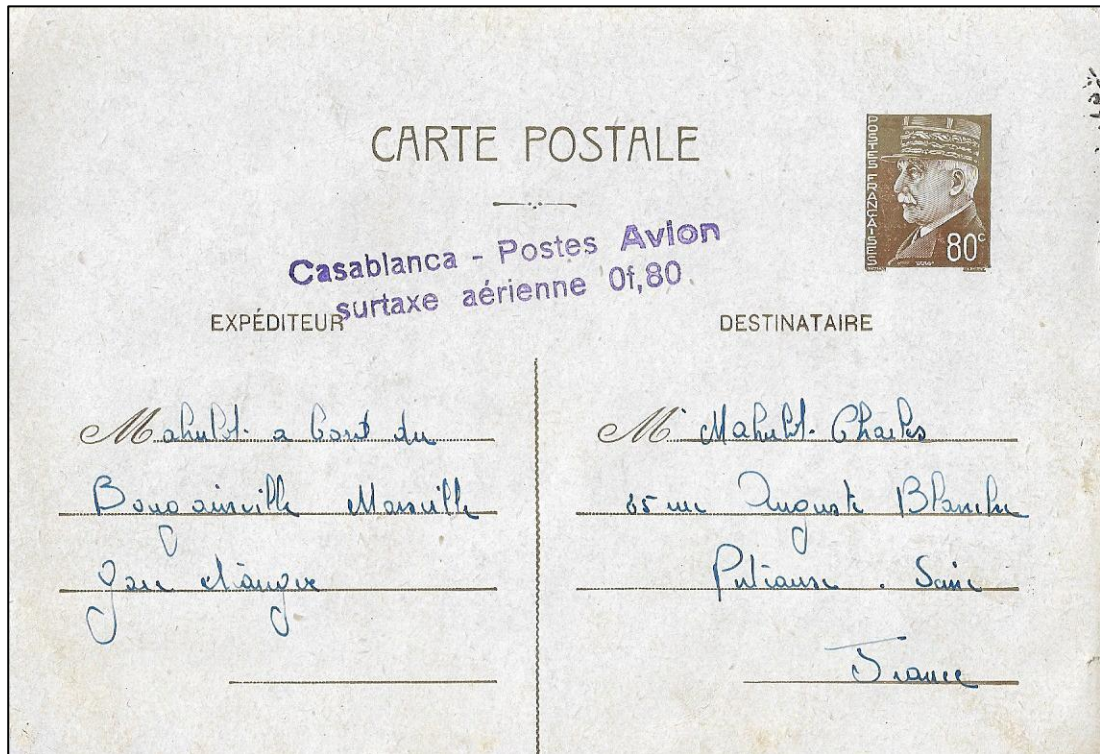 CARTE POSTALE
POSTES FRANÇAISES
80c
Casablanca - Postes Avion
surtaxe aérienne 0f,80.
EXPÉDITEUR
Mahulot a bord du
Bougainville Marseille
DESTINATAIRE
M Mahulot Charles
65 rue Auguste Blanche
Puteaux . Seine
France